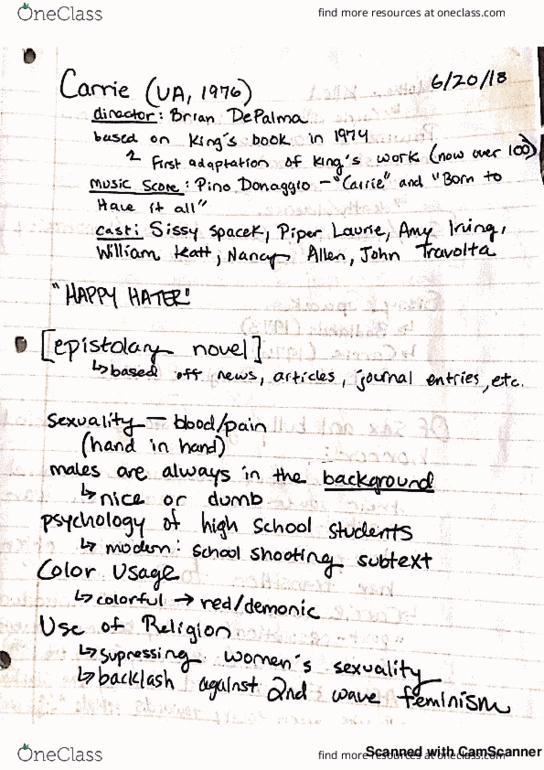 OneClass
find more resources at oneclass.com
Carrie (UA, 1976)
6/20/18
director: Brian DePalma
based on King's book in 1974
First adaptation of King's work (now over 100)
Music Score: Pino Donaggio - "Carrie" and "Born to
Have it all"
cast: Sissy Spacek, Piper Laurie, Amy Irving,
William Katt, Nancy Allen, John Travolta
"HAPPY HATER"
[epistolary novel]
↳ based off news, articles, journal entries, etc.
Sexuality — blood/pain
(hand in hand)
males are always in the background
↳ nice or dumb
psychology of high school students
↳ modern: school shooting subtext
Color Usage
↳ colorful → red/demonic
Use of Religion
↳ supressing women's sexuality
↳ backlash against 2nd wave feminism
OneClass
find more resources at oneclass.com
Scanned with CamScanner